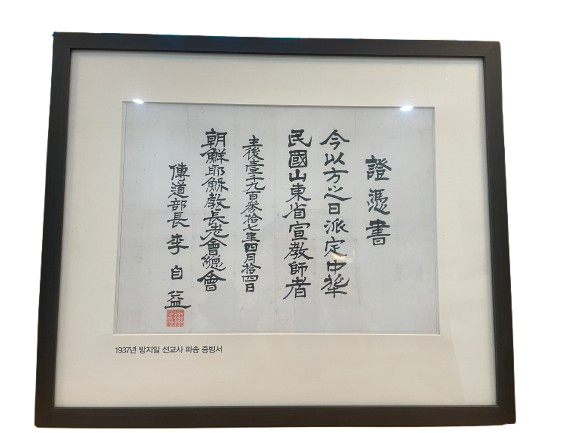 證憑書
今以方之日派定中華
民國山東省宣教師者
主後壹千九百參拾七年四月拾四日
朝鮮耶穌教長老會總會
傳道部長 李自益
1937년 방지일 선교사 파송 증빙서